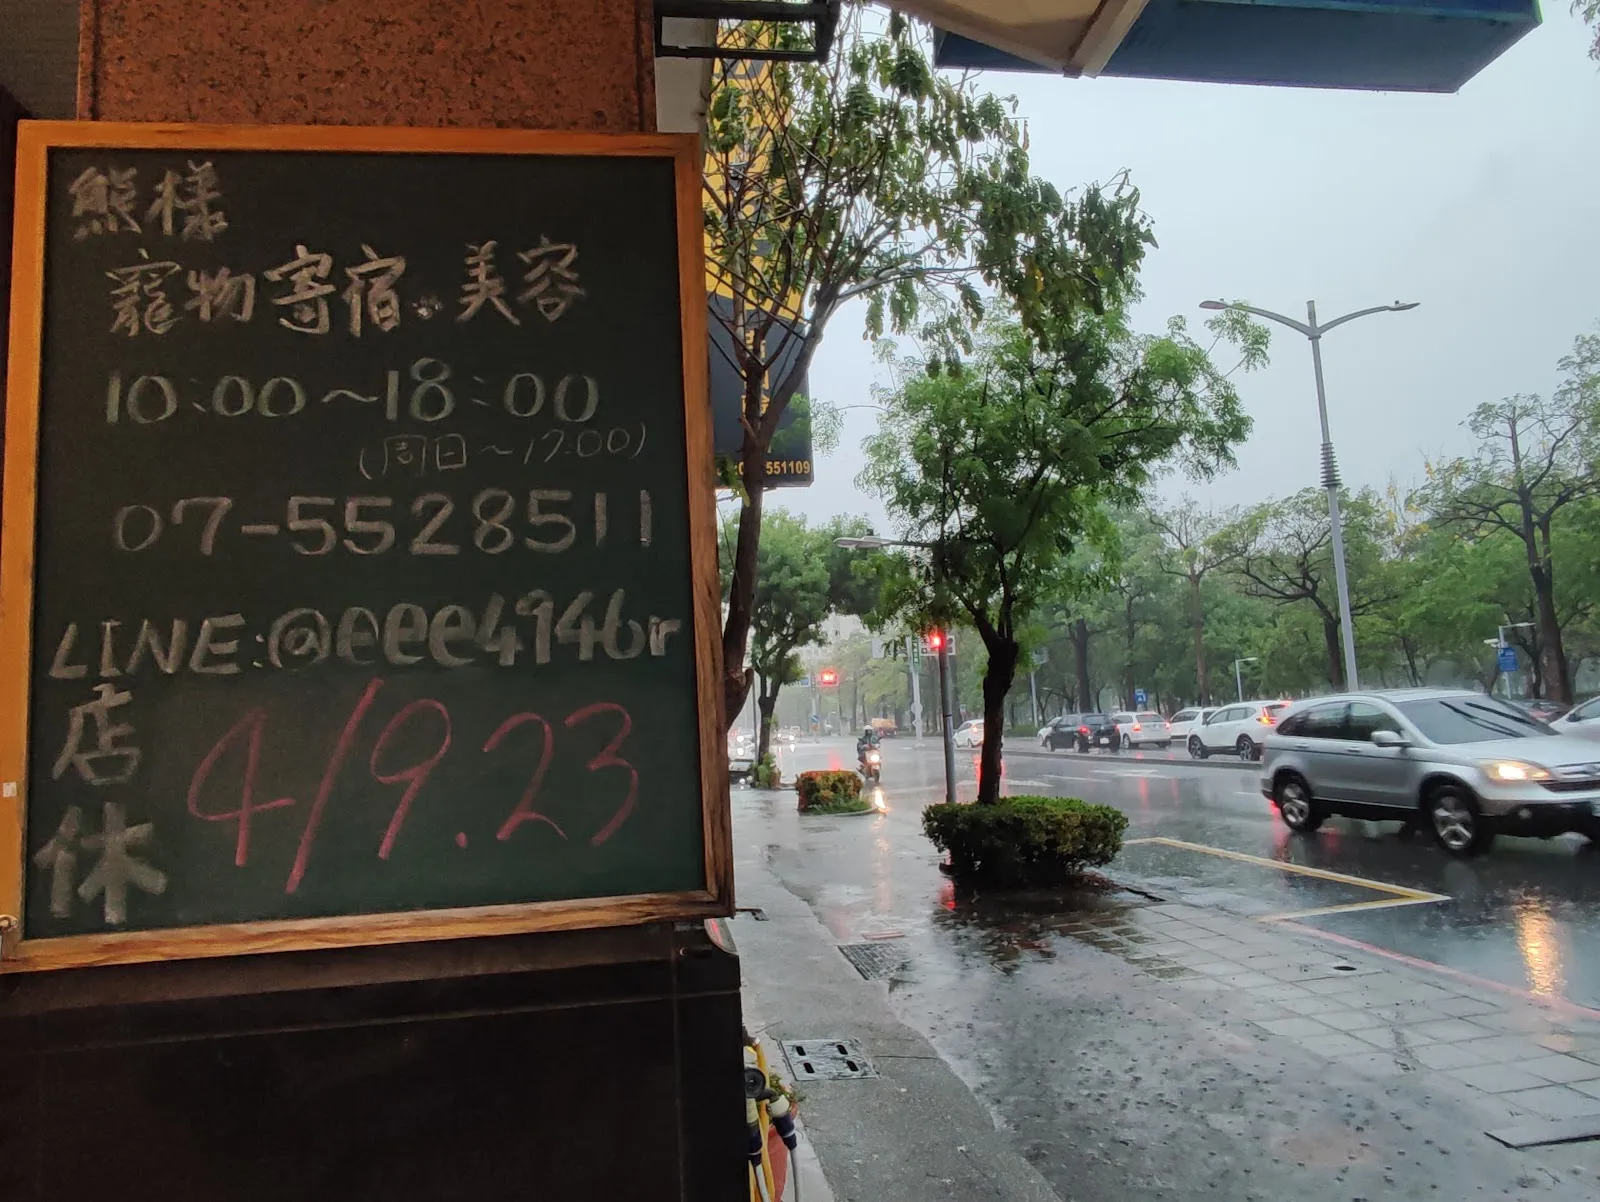 熊樣
寵物寄宿..美容
10:00～18:00
(周日～17:00)
07-5528511
LINE:@eee4946ir
店休 4/9.23
551109